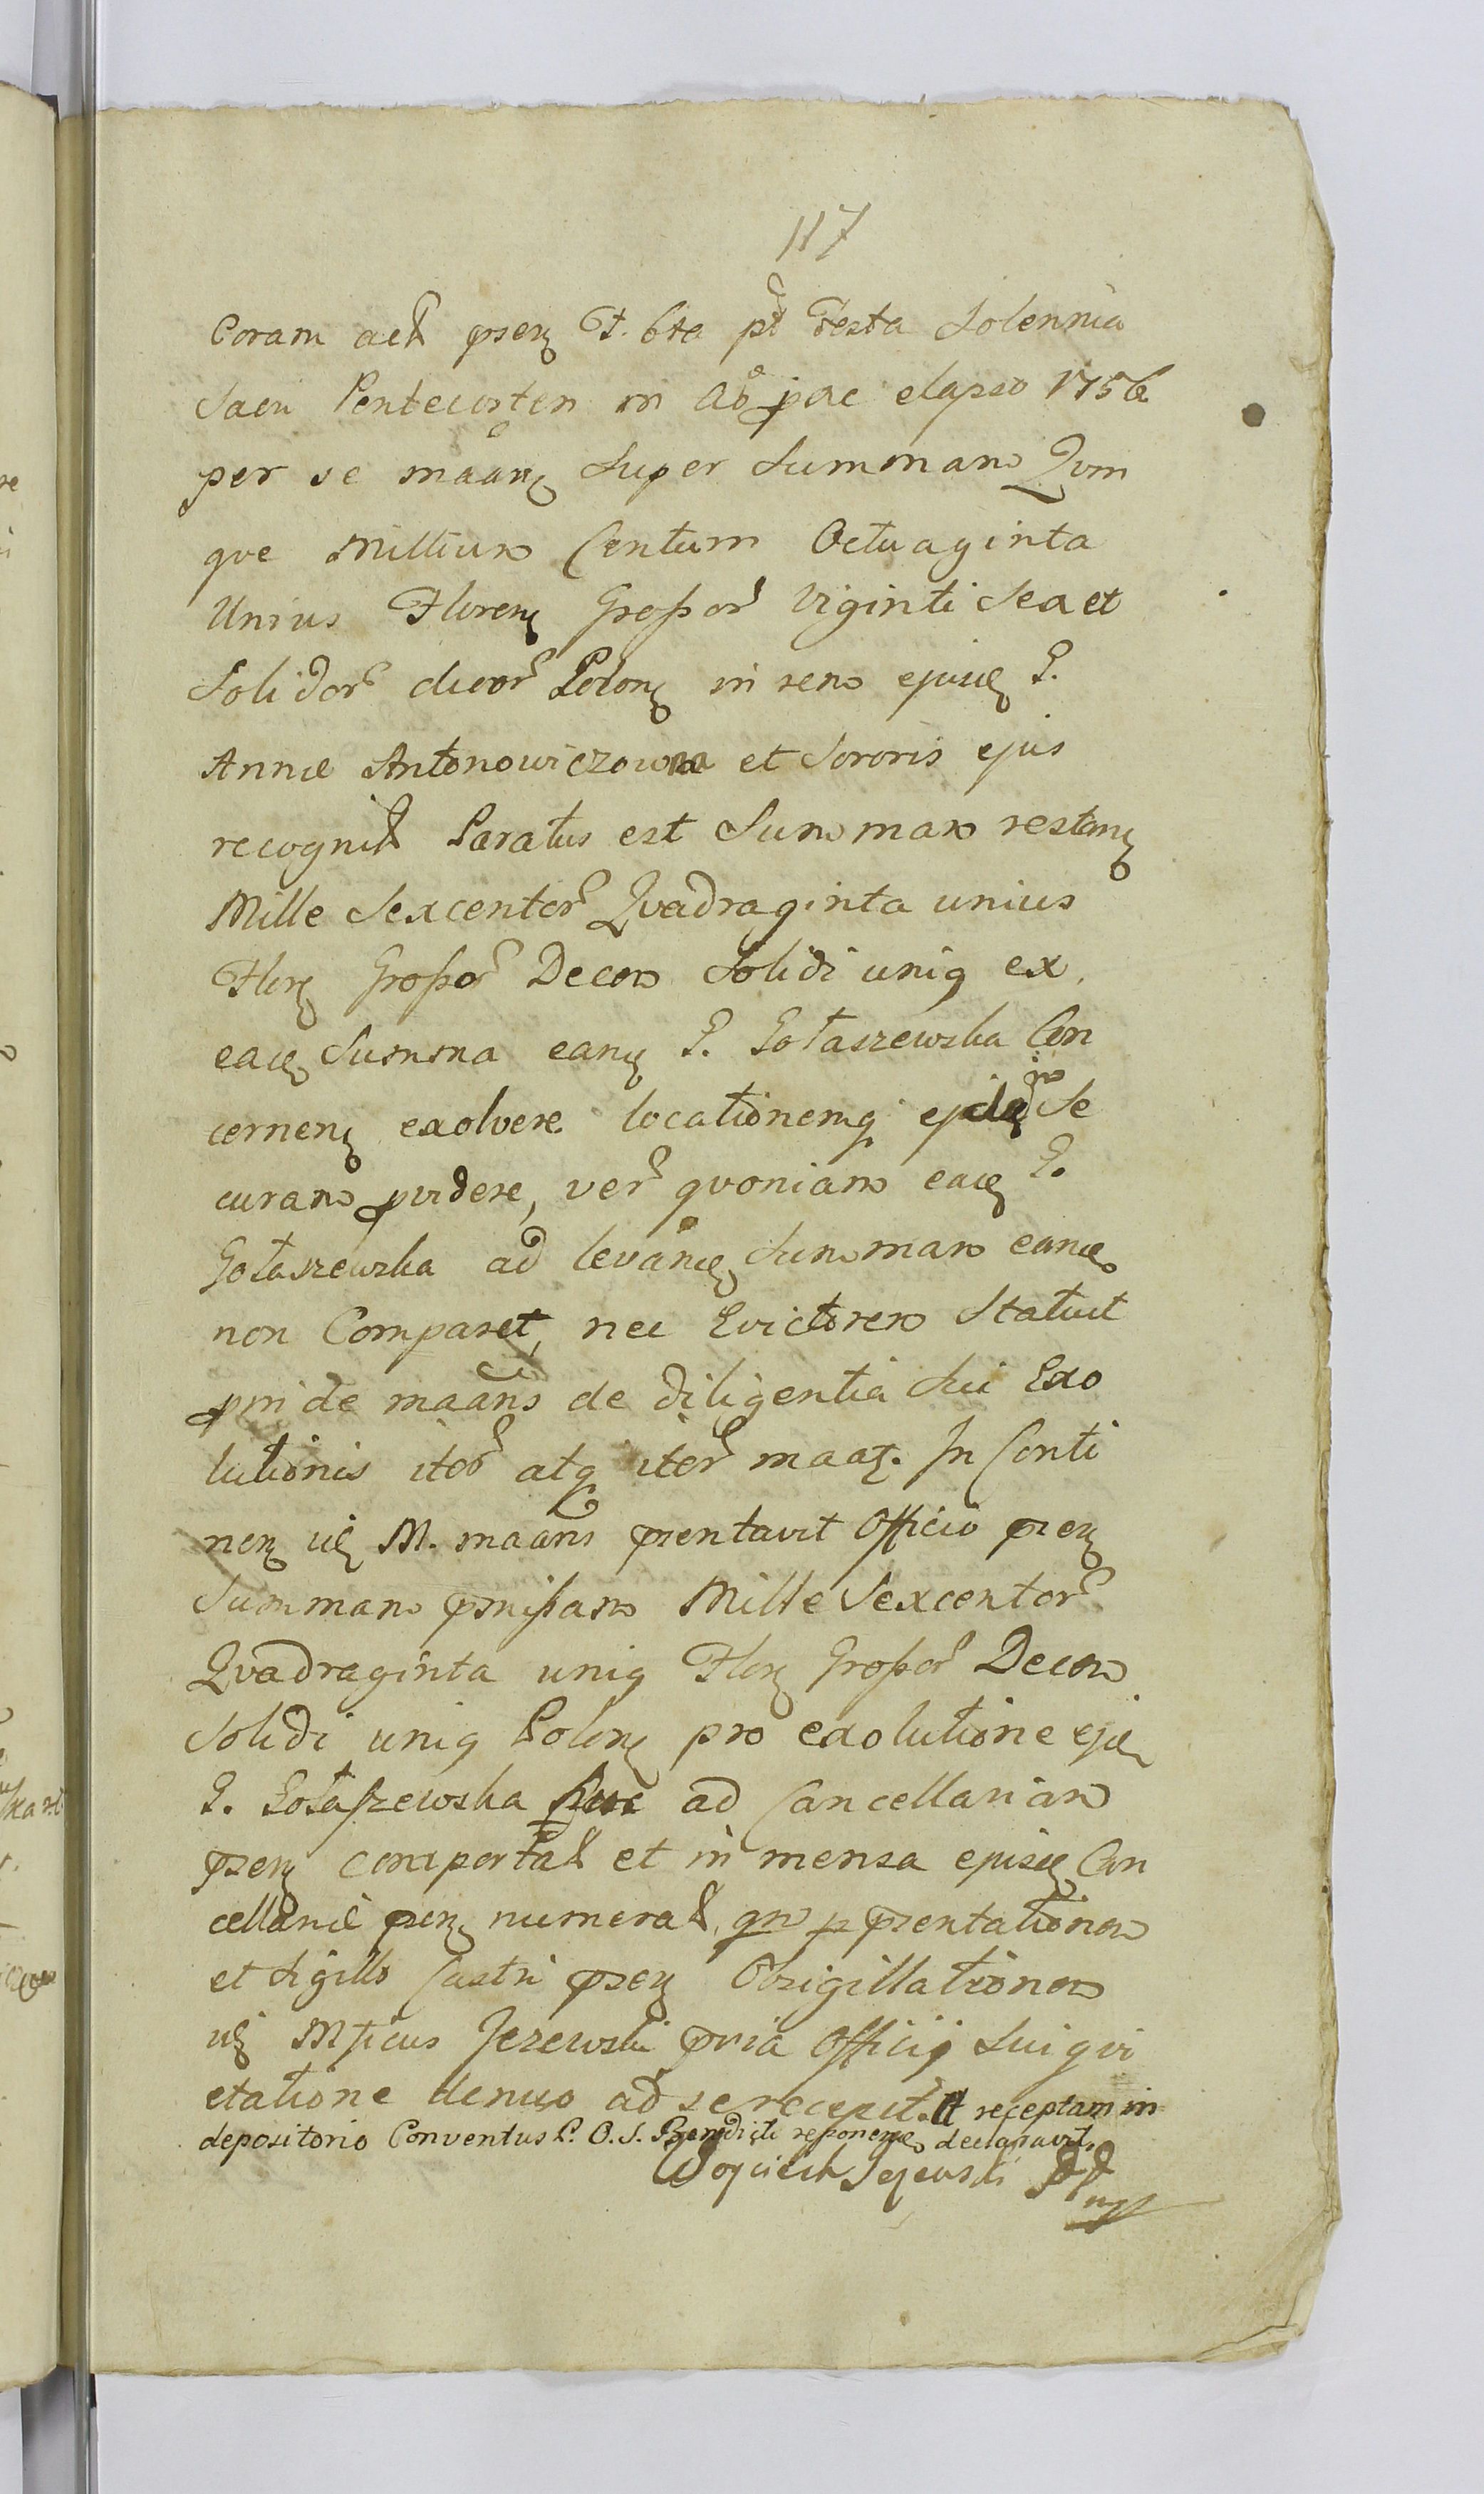 117
Coram act prsen F. 6ta pt Festa Solennia
Sacri Pentecosten in Ao prac elapso 1756
per se maãn Super Summam Qvin
qve Millium Centum Octuaginta
Unius Floren Grossor Viginti Sex et
Solidor duor Polon in rem ejusd G.
Annæ Antonowiczowna et Sororis ejus
recognit Paratus est Summam restan
Mille Sexcentor Qvadraginta unius
Flor Grossor Decem Solidi uniq ex
ead Summa eand G. Gołaszewska Con
cernen exolvere locationemq ejusd in Se
curam pvidere, ver qvoniam ead G.
Gołaszewska ad levand Summam eand
non Comparet, nec Evictorem Statuit
pinde maãns de diligentia Sui Exo
lutionis iter atq iter maat. In Conti
nen id M. maãns prentavit Officio prsen
Summam prmissam Mille Sexcentor
Qvadraginta uniq Flor Grossor Decem
Solidi uniq Polon pro exolutione ejd
G. Gołaszewska huc ad Cancellariam
prsen comportat et in mensa ejusd Can
cellariæ prsen numerat, qm p prsentationem
et Sigillo Castri prsen Obsigillationem
id Mficus Jezewski pvia Officij Sui qvi
etatione denuo ad se recepit. Et receptam in
depositorio Conventus P. O. S. Benedicti reponere declaravit.
Woyciech Jezewski